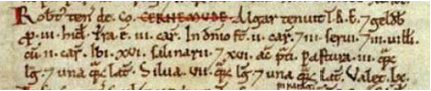 Robt' ten' de Co. CERNEMUDE. Algar tenuit T.R.E. 7 geldb'
p. iii. hid'. Tra. ē. iii. car'. In dn̄io st̄. ii. car'. 7 iii. serui. 7 iii. uilli
cū. ii. car'. Ibi. xvi. salinarii. 7 xvi. ac' p̄ti. Pastura. iii. q̄rent'
lḡ. 7 una q̄rent' lat'. Silua. vii. q̄rent' lḡ. 7 una q̄rent' lat'. Valet. lx.